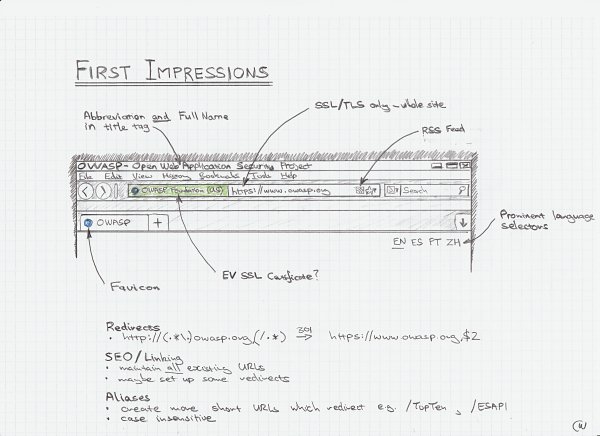 FIRST IMPRESSIONS
Abbreviation and Full Name
in title tag
SSL/TLS only - whole site
RSS Feed
OWASP - Open Web Application Security Project
File Edit View History Bookmarks Tools Help
OWASP Foundation (US) https://www.owasp.org
Search
OWASP +
EN ES PT ZH
Prominent language
selectors
EV SSL Certificate?
Favicon
Redirects
• http://(.*\.)owasp.org(/.*) 301 → https://www.owasp.org,$2
SEO/Linking
• maintain all existing URLs
• maybe set up some redirects
Aliases
• create more short URLs which redirect e.g. /TopTen, /ESAPI
• case insensitive